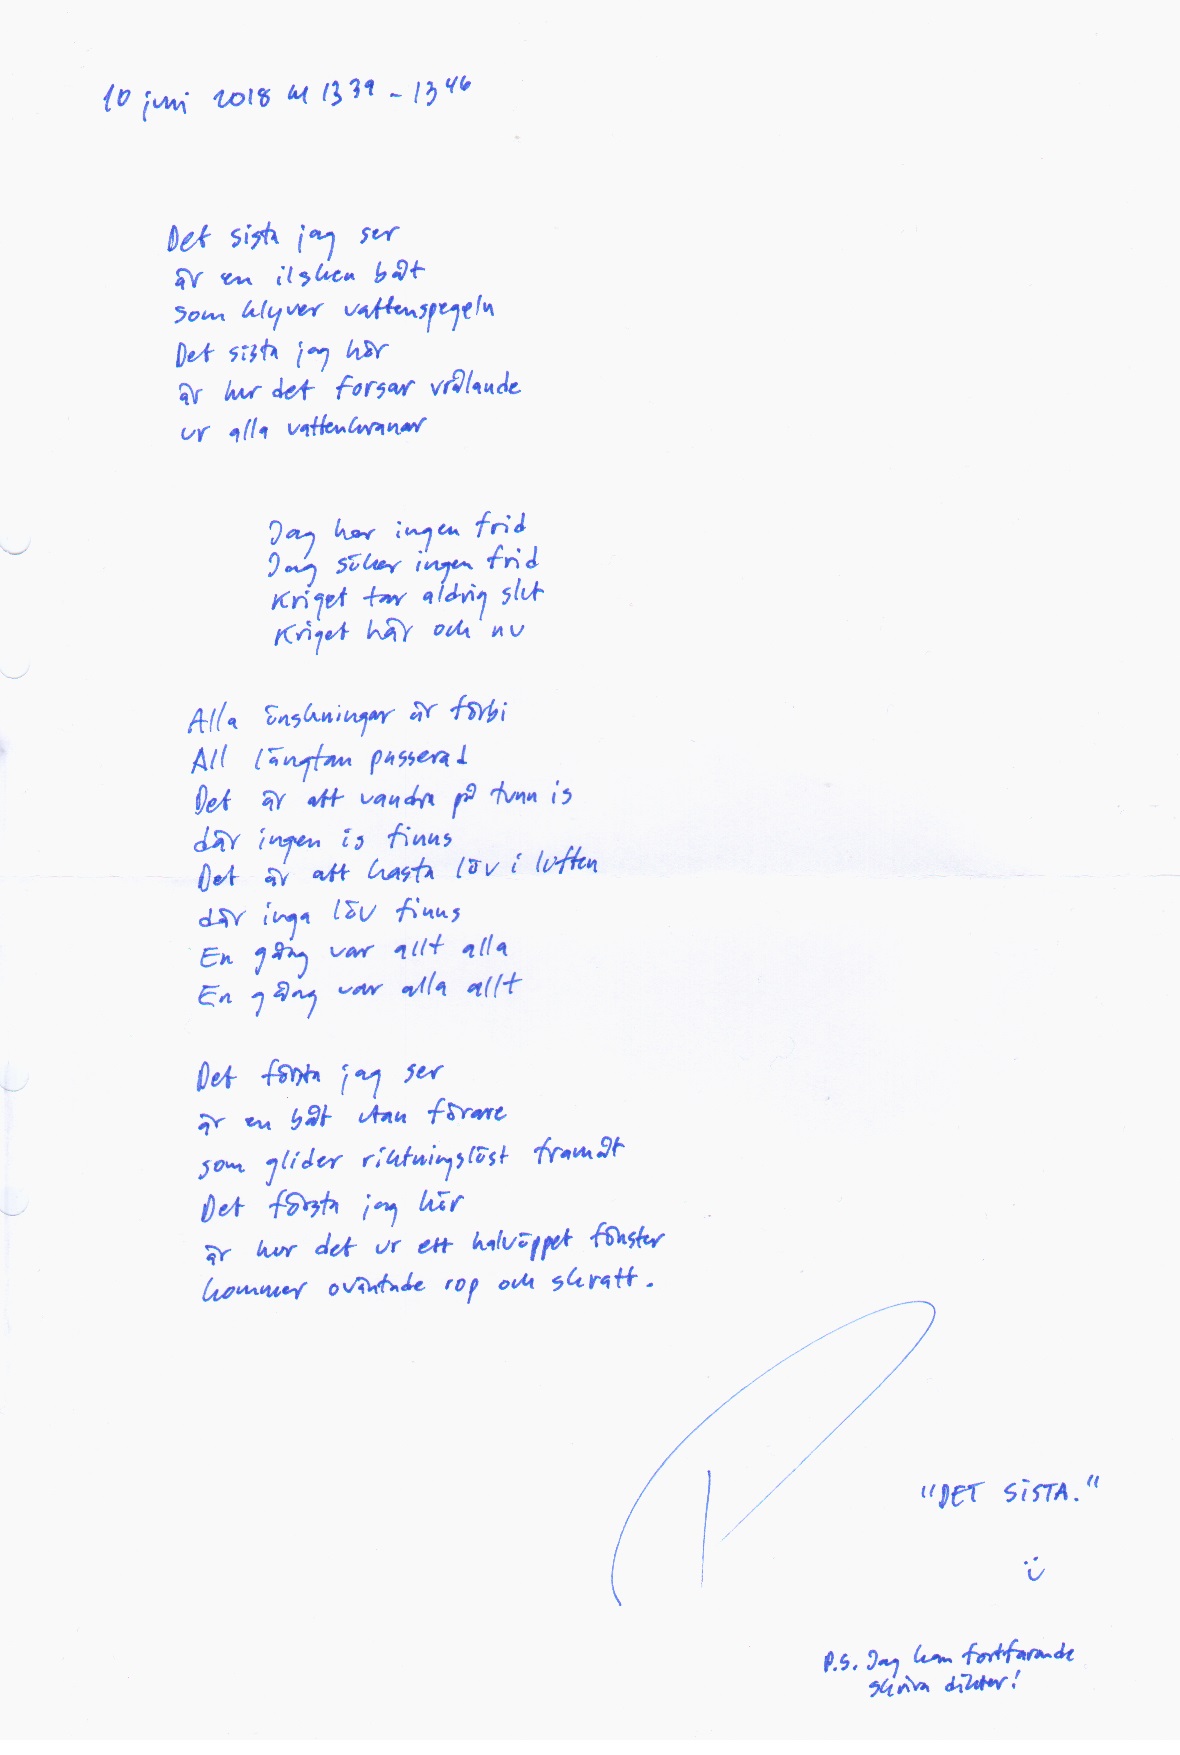 10 juni 2018 kl 13 39 - 13 46
Det sista jag ser
är en ilsken båt
som klyver vattenspegeln
Det sista jag hör
är hur det forsar vrålande
ur alla vattenkranar
Jag har ingen frid
Jag söker ingen frid
Kriget tar aldrig slut
Kriget här och nu
Alla önskningar är förbi
All längtan passerad
Det är att vandra på tunn is
där ingen is finns
Det är att kasta löv i luften
där inga löv finns
En gång var allt alla
En gång var alla allt
Det första jag ser
är en båt utan förare
som glider riktningslöst framåt
Det första jag hör
är hur det ur ett halvöppet fönster
kommer oväntade rop och skratt.
"DET SISTA."
P.S. Jag kan fortfarande
skriva dikter!